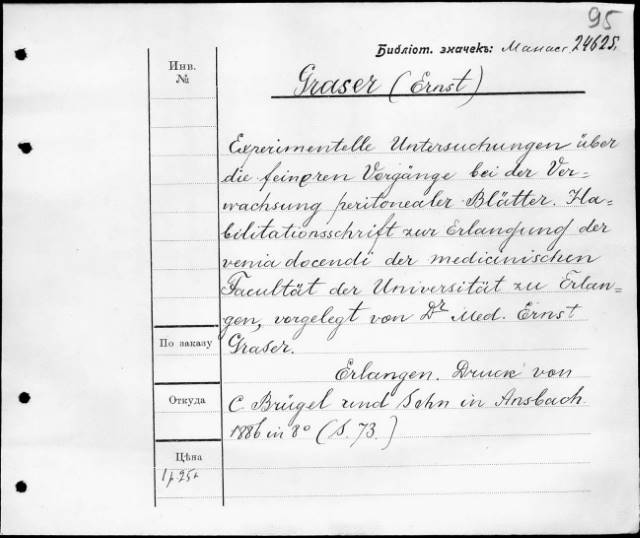 95
Библіот. значекъ: Манасс. 24625.
Graser (Ernst)
Инв.
№
Experimentelle Untersuchungen über
die feineren Vorgänge bei der Ver=
wachsung peritonealer Blätter. Ha=
bilitationsschrift zur Erlangung der
venia docendi der medicinischen
Facultät der Universität zu Erlan=
gen, vorgelegt von Dr Med. Ernst
Graser.
Erlangen. Druck von
C Brügel und Sohn in Ansbach
1886 in 8° (S. 73.)
По заказу
Откуда
Цѣна
1 р 25 к